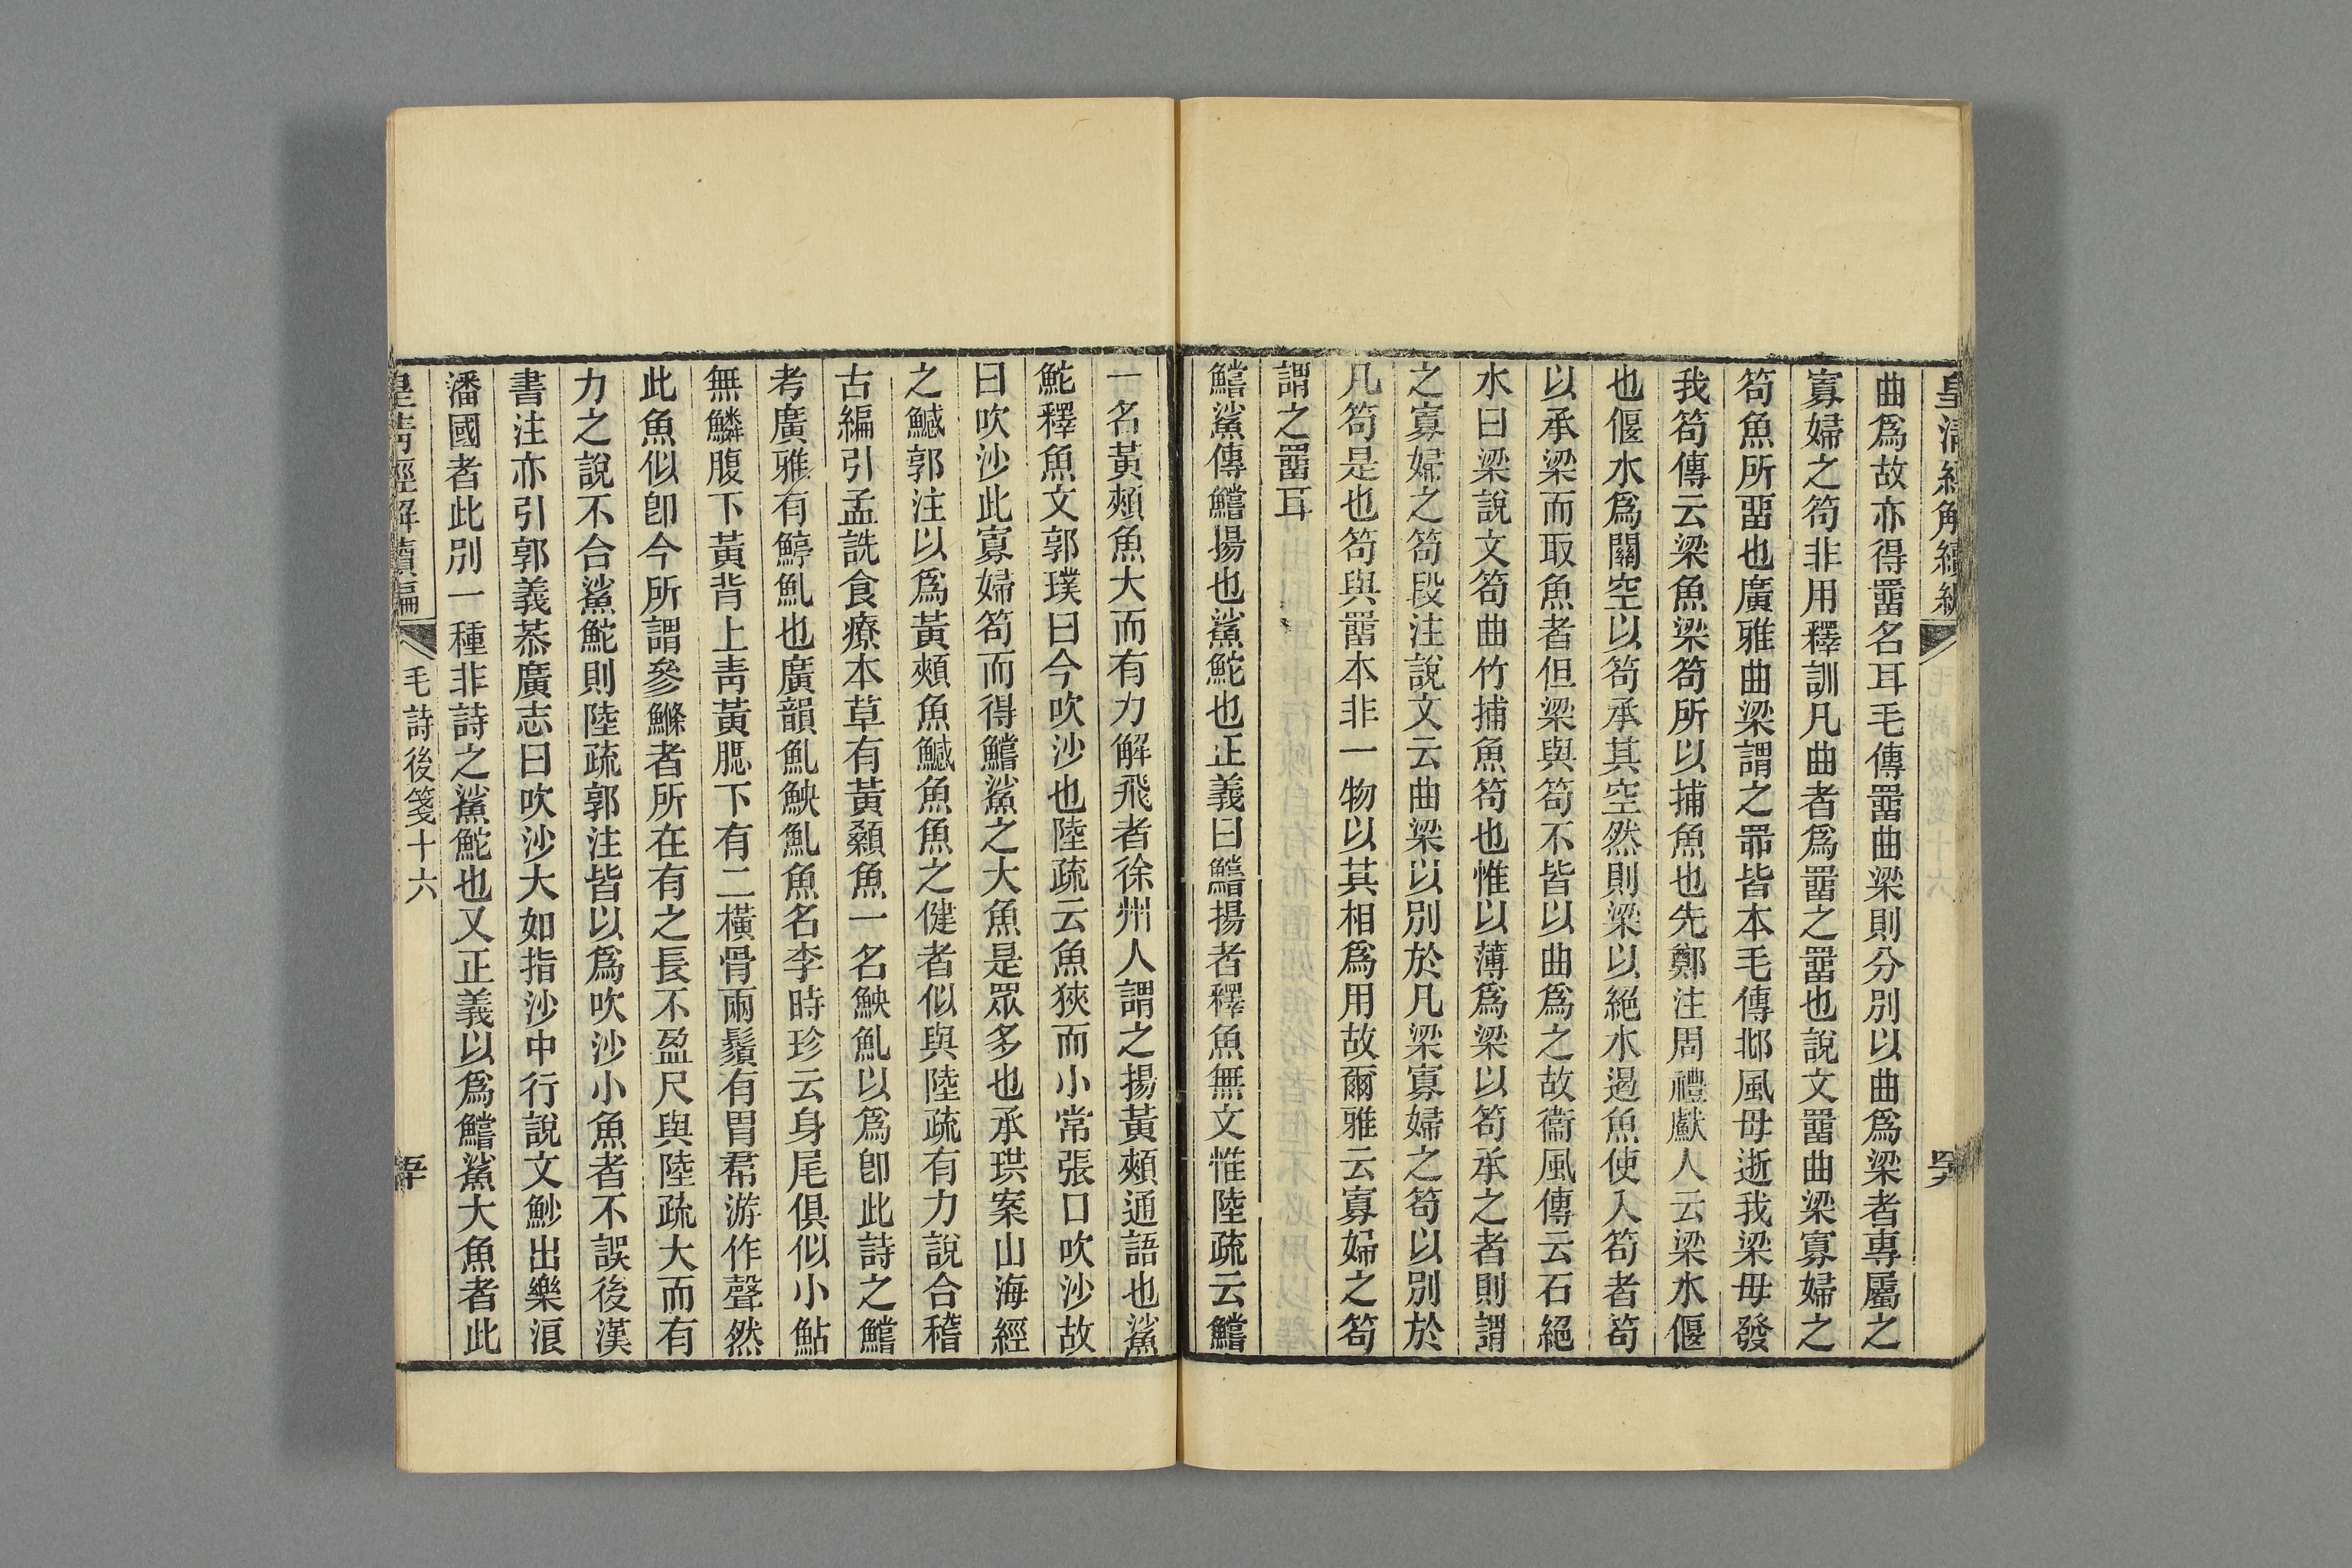 曲爲故亦得罶名耳毛傳罶曲梁則分別以曲爲梁者專屬之
寡婦之笱非用釋訓凡曲者爲罶之罶也說文罶曲梁寡婦之
笱魚所畱也廣雅曲梁謂之罶皆本毛傳邶風毋逝我梁毋發
我笱傳云梁魚梁笱所以捕魚也先鄭注周禮䱷人云梁水偃
也偃水爲關空以笱承其空然則梁以絕水遏魚使入笱者笱
以承梁而取魚者但梁與笱不皆以曲爲之故衞風傳云石絕
水曰梁說文笱曲竹捕魚笱也惟以薄爲梁以笱承之者則謂
之寡婦之笱段注說文云曲梁以別於凡梁寡婦之笱以別於
凡笱是也笱與罶本非一物以其相爲用故爾雅云寡婦之笱
謂之罶耳
鱨鯊傳鱨揚也鯊鮀也正義曰鱨揚者釋魚無文惟陸疏云鱨
一名黃頰魚大而有力解飛者徐州人謂之揚黃頰通語也鯊
鮀釋魚文郭璞曰今吹沙也陸疏云魚狹而小常張口吹沙故
曰吹沙此寡婦笱而得鱨鯊之大魚是眾多也承珙案山海經
之鰔郭注以爲黃頰魚鰔魚魚之健者似與陸疏有力說合稽
古編引孟詵食療本草有黃顙魚一名鉠魤以爲卽此詩之鱨
考廣雅有䱟魤也廣韻魤鉠魤魚名李時珍云身尾俱似小鮎
無鱗腹下黃背上靑黃腮下有二橫骨兩鬚有胃羣游作聲然
此魚似卽今所謂參鰷者所在有之長不盈尺與陸疏大而有
力之說不合鯊鮀則陸疏郭注皆以爲吹沙小魚者不誤後漢
書注亦引郭義恭廣志曰吹沙大如指沙中行說文魦出樂浪
潘國者此別一種非詩之鯊鮀也又正義以爲鱨鯊大魚者此
皇淸經解續編
毛詩後箋十六